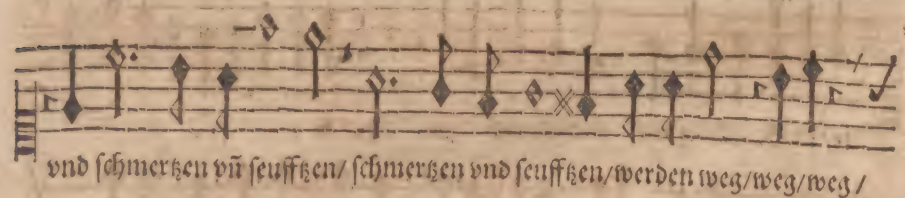 vnd ſchmertzen vñ ſeufftzen/ ſchmertzen vnd ſeufftzen/werden weg/weg/weg/